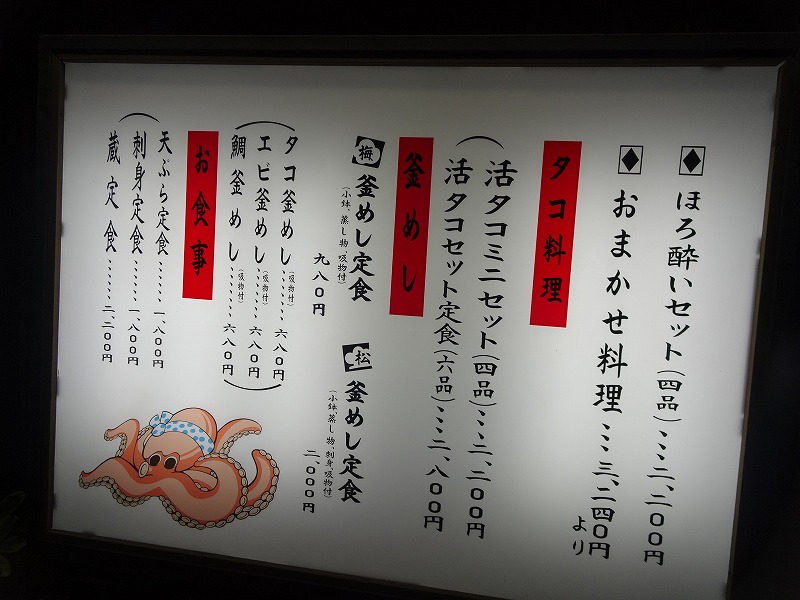 ほろ酔いセット(四品)……二、二〇〇円
おまかせ料理……三、二四〇円より
タコ料理
活タコミニセット(四品)……二、二〇〇円
活タコセット定食(六品)……二、八〇〇円
釜めし
梅 釜めし定食
(小鉢、蒸し物、吸物付)
九八〇円
松 釜めし定食
(小鉢、蒸し物、刺身、吸物付)
二、〇〇〇円
タコ釜めし(吸物付)……六八〇円
エビ釜めし(吸物付)……六八〇円
鯛釜めし(吸物付)……六八〇円
お食事
天ぷら定食……一、八〇〇円
刺身定食……一、八〇〇円
蔵定食……二、二〇〇円